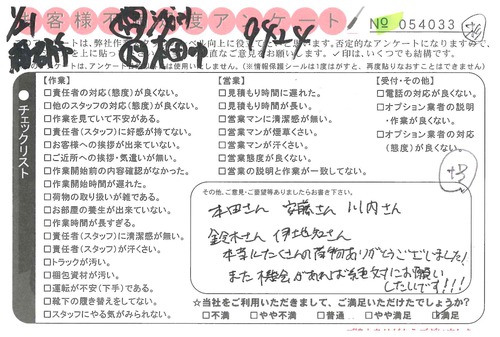 お客様不満足度アンケート
№ 054033
1/21
0424
【作業】
□責任者の対応(態度)が良くない。
□他のスタッフの対応(態度)が良くない。
□作業を見ていて不安がある。
□責任者(スタッフ)に好感が持てない。
□お客様への挨拶が出来ていない。
□ご近所への挨拶・気遣いが無い。
□作業開始前の内容確認がなかった。
□作業開始時間が遅れた。
□荷物の取り扱いが雑である。
□お部屋の養生が出来ていない。
□作業時間が長すぎる。
□責任者(スタッフ)に清潔感が無い。
□責任者(スタッフ)が汗くさい。
□トラックが汚い。
□梱包資材が汚い。
□運転が不安(下手)である。
□靴下の履き替えをしてない。
□スタッフにやる気がみられない。
チェックリスト
【営業】
□見積もり時間に遅れた。
□見積もり時間が長い。
□営業マンに清潔感が無い。
□営業マンが煙草くさい。
□営業マンが汗くさい。
□営業態度が良くない。
□営業の説明と作業が一致してない。
【受付・その他】
□電話の対応が良くない。
□オプション業者の説明
・作業が良くない。
□オプション業者の対応
(態度)が良くない。
+3
その他、ご意見・ご要望等ありましたらお書き下さい。
本田さん 安藤さん 川内さん
鈴木さん 伊地知さん
本当にたくさんの荷物ありがとうございました!
また機会があれば絶対にお願い
したいです!!!
☆当社をご利用いただきまして、ご満足いただけたでしょうか?
□不満 □やや不満 □普通 □やや満足 □満足